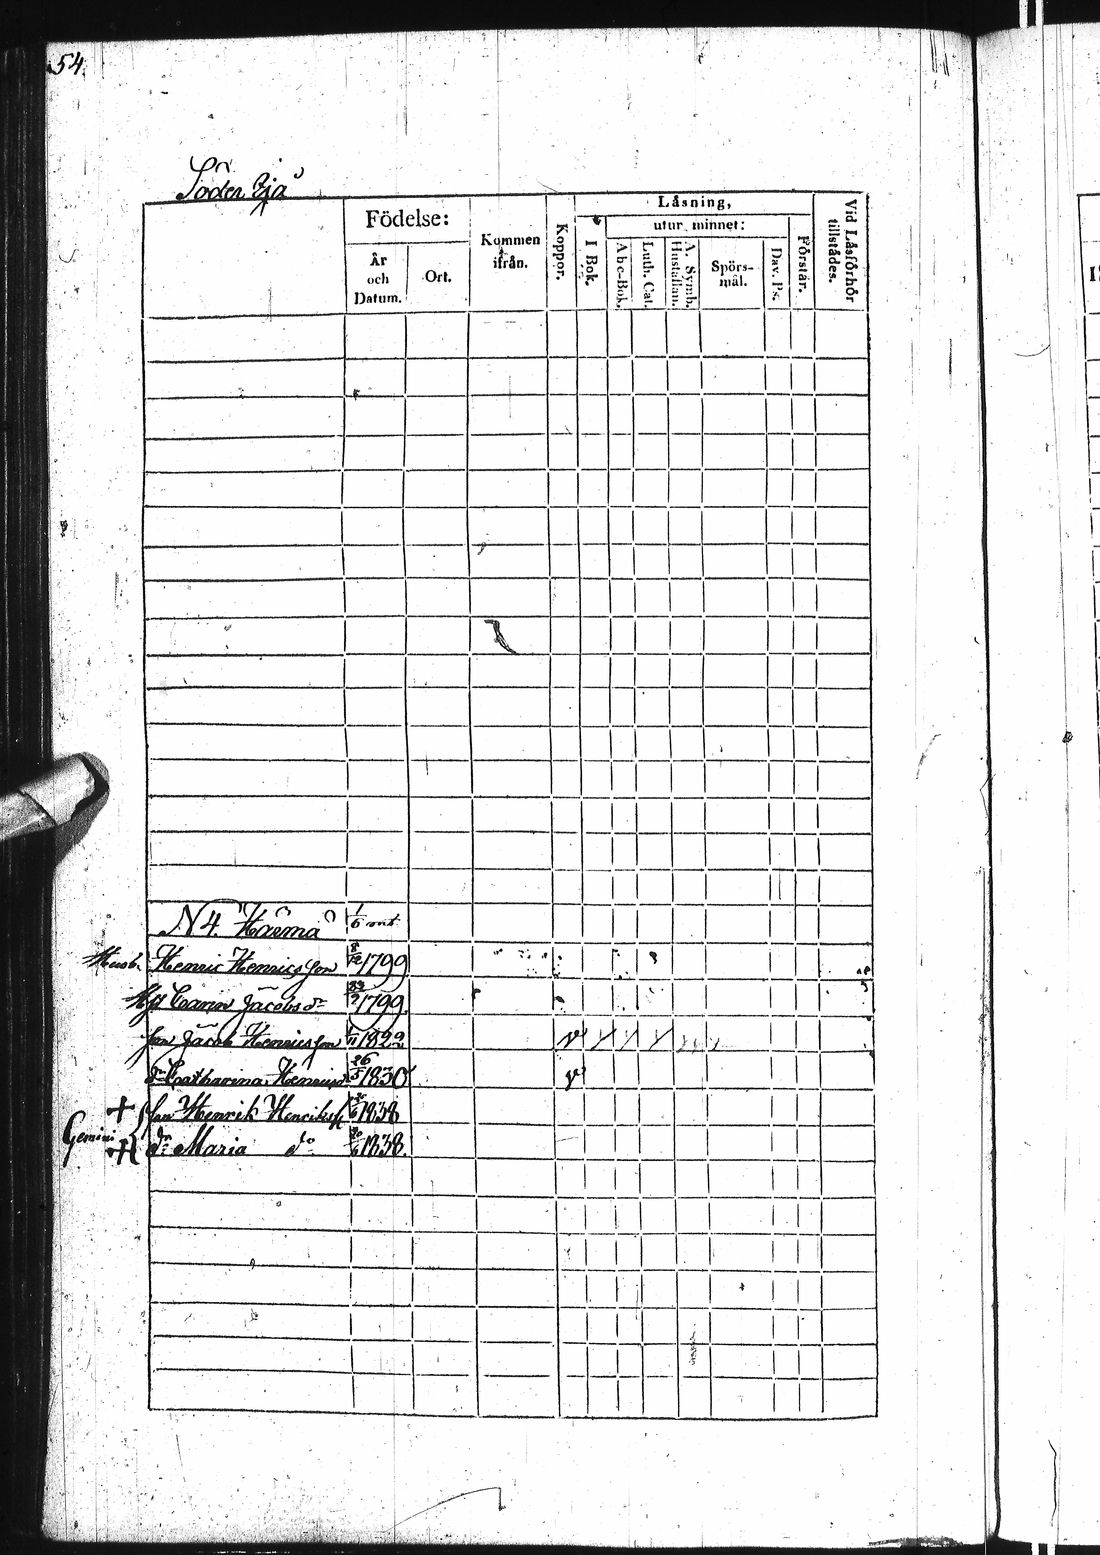 54.
Söderbyå
Födelse:
År och Datum.
Ort.
Kommen ifrån.
Koppor.
Läsning,
I Bok.
utur minnet:
Abc-Bok.
Luth. Cat.
A. Symb. Hustaflan.
Spörsmål.
Dav. Ps.
Förstår.
Vid Läsförhör tillstädes.
N 4. Härmä 1/6 mt
Husb. Henric Henricsson 8/12 1799
Carin Jacobsdr 1799.
son Jacob Henricsson 1/11 1822 v
dr Catharina 26/5 1830 v
Gemini
+ son Henrik Henriks 1838
+ dr Maria do 1838.